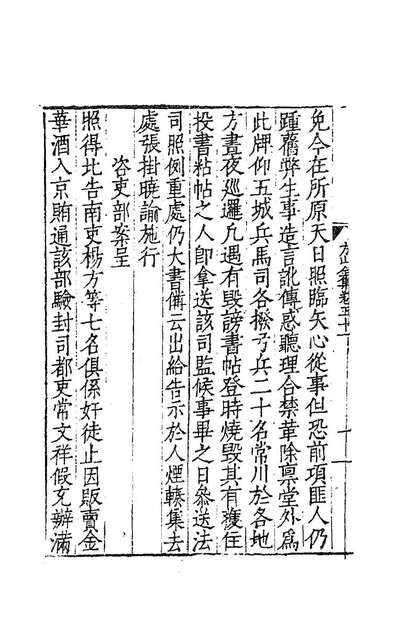 免今在所原天日照臨矢心從事但恐前項匪人仍
踵舊弊生事造言訛傳惑聽理合禁革除稟堂外爲
此牌仰五城兵馬司各撥弓兵二十名常川於各地
方晝夜廵邏凡遇有毀謗書帖登時燒毀其有獲住
投書粘帖之人卽拿送該司監候事畢之日叅送法
司照例重處仍大書備云出給告示於人煙輳集去
處張掛曉諭施行
咨吏部案呈
照得比告南吏楊方等七名俱係奸徒止因販賣金
華酒入京賄通該部驗封司都吏常文祥假充辦滿